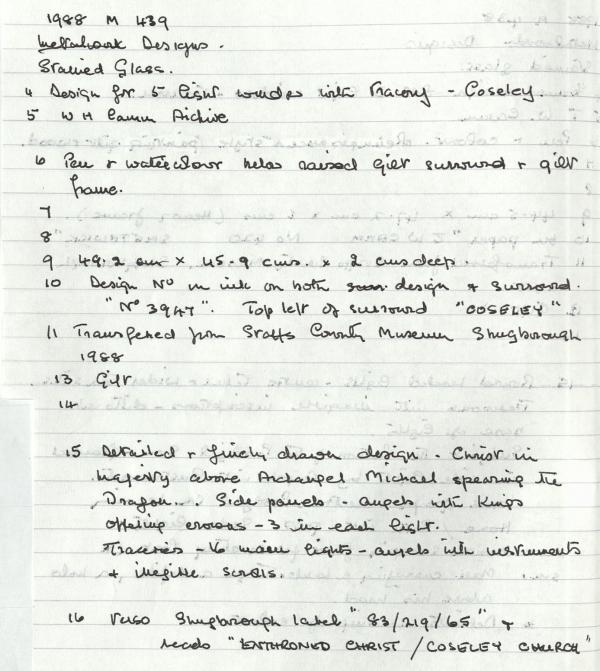 1988 M 439
Metalwork Designs.
Stained Glass.
4 Design for 5 light window with Tracery - Coseley.
5 W H Camm Archive
6 Pen & watercolour raised gilt surround & gilt
frame.
7
8
9 49.2 cm x 45.9 cms. x 2 cms deep.
10 Design No in ink on both design & surround.
"No 3947". Top left of surround "COSELEY"
11 Transferred from Staffs County Museum Shugborough
1988
13 Gilt
14
15 Detailed & finely drawn design - Christ in
Majesty above Archangel Michael spearing the
Dragon.. Side panels - angels with Kings
offering crowns - 3 in each light.
Traceries - 6 main lights - angels with instruments
& illegible scrolls.
16 Verso Shugborough label "83/219/65" &
reads "ENTHRONED CHRIST / COSELEY CHURCH"